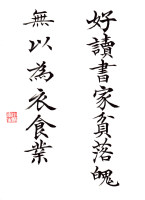 好讀書家貧落魄
無以為衣食業